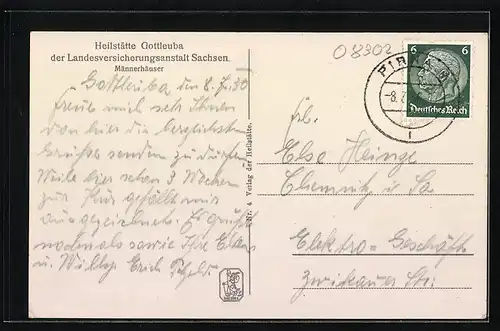 Heilstätte Gottleuba
der Landesversicherungsanstalt Sachsen.
Männerhäuser
Gottleuba, den 8.7.
Freue mich sehr Ihnen
von hier die herzlichsten
Grüße senden zu dürfen
Weile hier schon 3 Wochen
zur Kur gefällt mir
ausgezeichnet. Es grüßt
nochmals sowie Ihre Eltern
u. Willy Erich
Nr. 4 Verlag der Heilstätte.
08302
6 6
Deutsches Reich
PIRNA
-8.7
Frl.
Else Heinge
Chemnitz i. Sa
Elektro-Geschäft
Zwickauer Str: